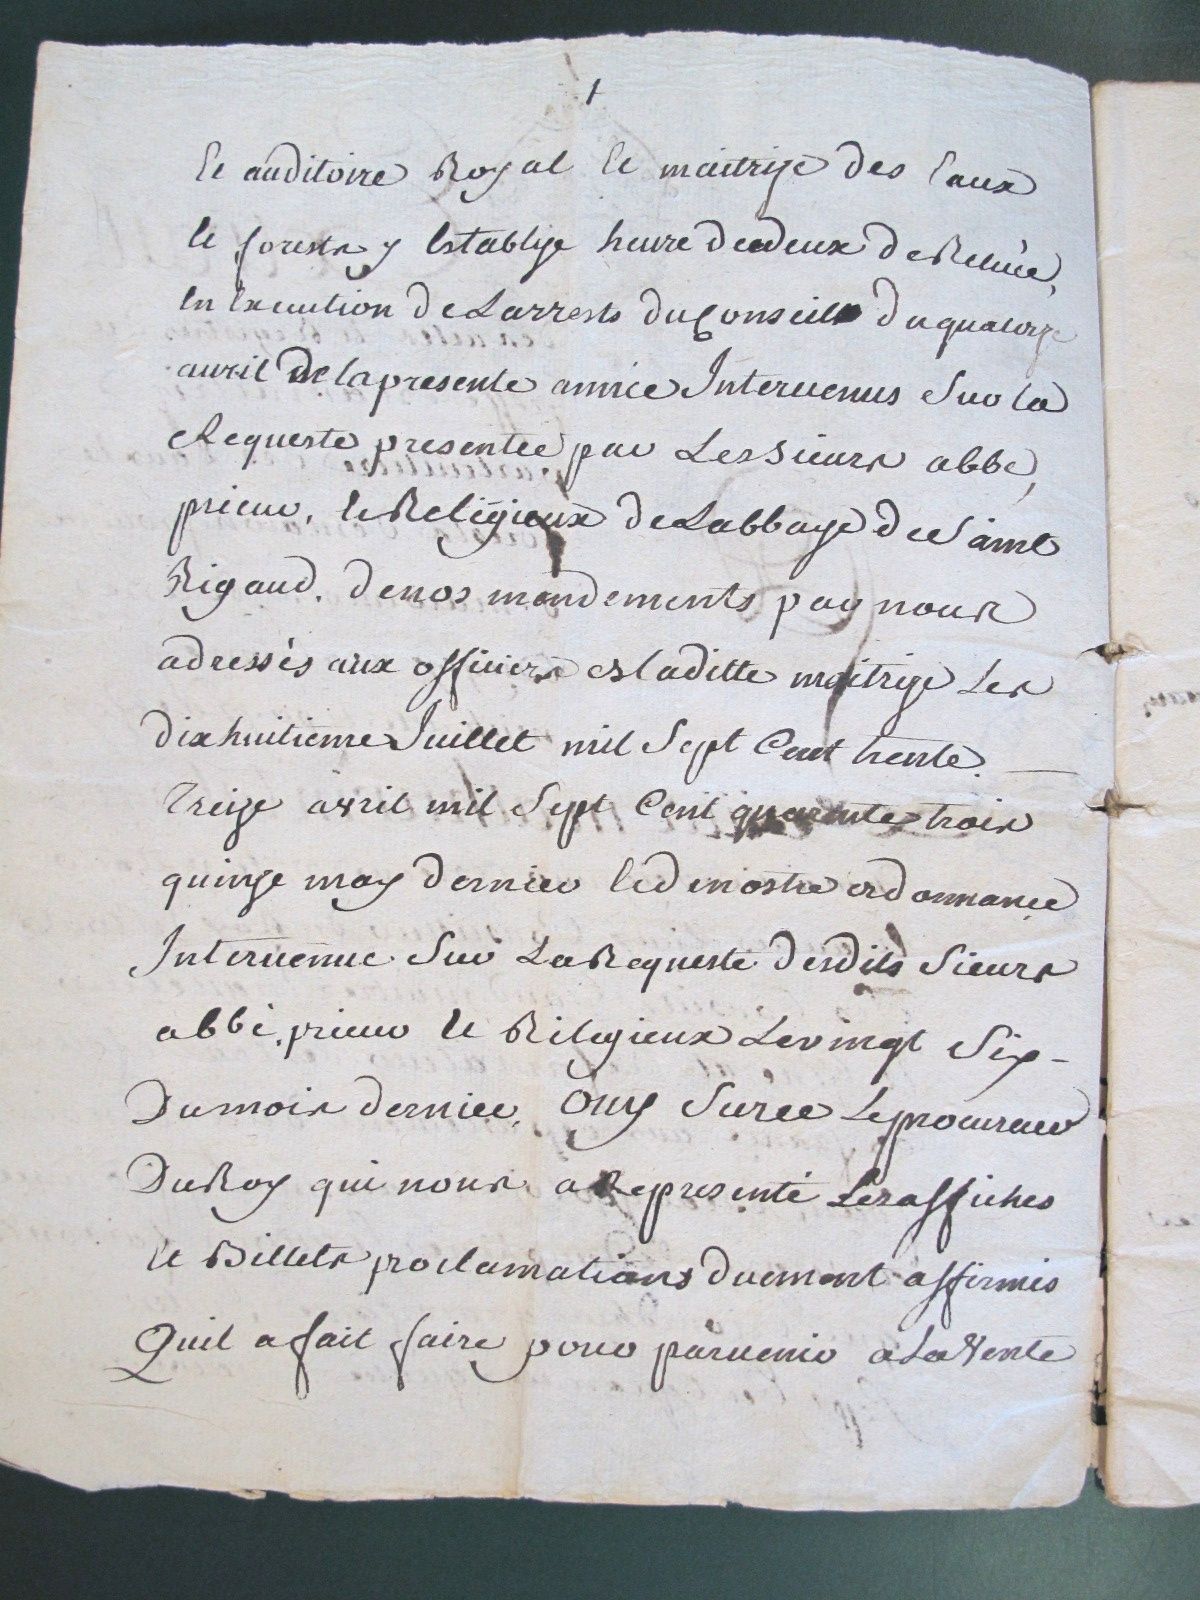 1
et auditoire Royal et maitrise des Eaux
et forests y Establye heure de deux de Relevée,
En Execution de Larrests du Conseil du quatorze
auril de la presente année Interuenus Sur la
Requeste presentée par Les Sieurs abbé,
prieur, et Religieux de Labbaye de Saint
Rigaud. de nos mandements par nous
adressés aux officiers de laditte maitrise Les
dixhuitieme Juillet mil Sept Cent trente.
Treize avril mil Sept Cent quarente trois
quinze may dernier Et de nostre ordonnance
Interuenue Sur La Requeste desdits Sieurs
abbé, prieur et Religieux Le vingt Six
Du mois dernier, Ouy Surce Le procureur
Du Roy qui nous a Representé Les affiches
et Billets proclamations duement affirmés
Quil a fait faire pour paruenir a La Vente